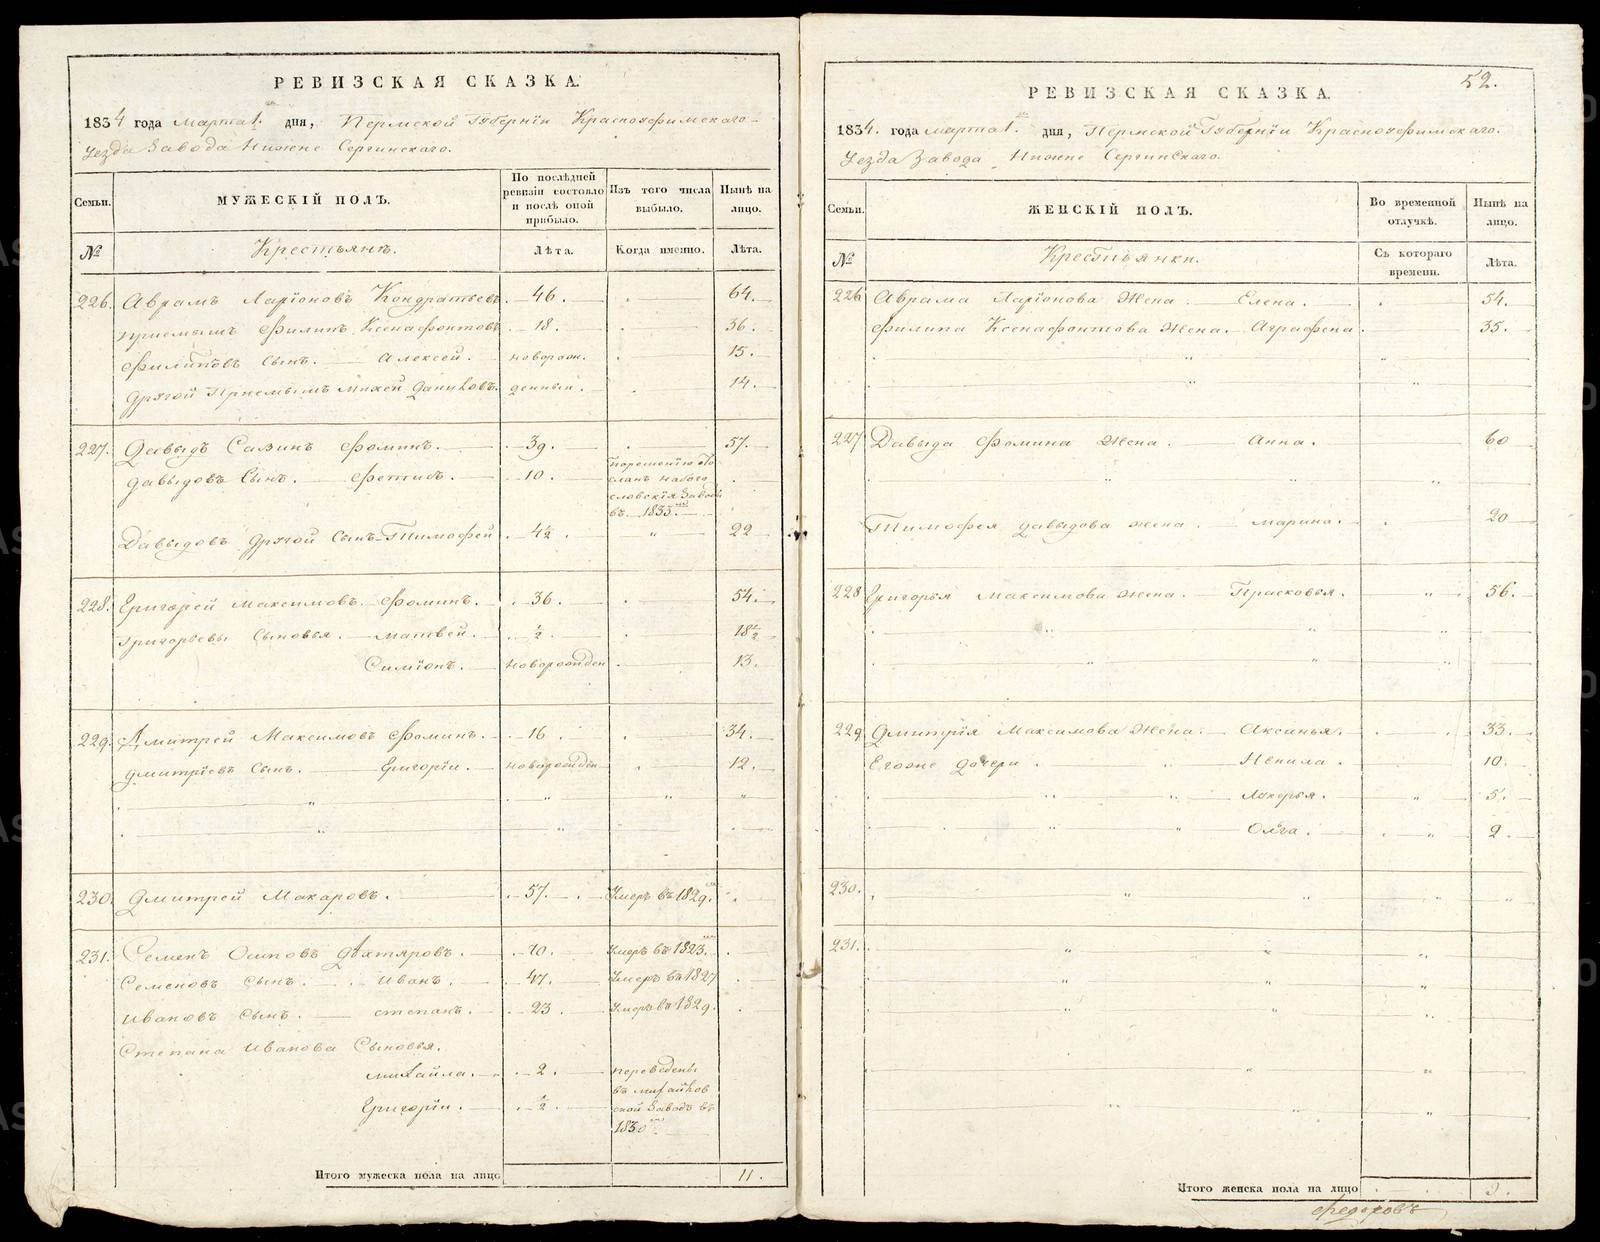 РЕВИЗСКАЯ СКАЗКА.
1834 года марта 1. дня, Пермской Губернїи Красноуфимскаго
Уезда Завода Нижне Сергинскаго.
Семьи.
МУЖЕСКІЙ ПОЛЪ.
По послѣдней ревизіи состояло и послѣ оной прибыло.
Изъ того числа выбыло.
Нынѣ на лицо.
№
Крестьянъ.
Лѣта.
Когда именно.
Лѣта.
226. Аврамъ Ларїоновъ Кондратьевъ. 46. 64.
приемышъ Филипъ Ксенафонтовъ 18. 36.
Филиповъ Сынъ. Алексей. новорож. 15.
другой Приемышъ Михей Даниловъ. денныи. 14.
227. Давыдъ Савинъ Фоминъ. 39. 57.
Давыдовъ Сынъ. Фетисъ. 10.
порешенїю со
сланъ набого
словскїя Завод
въ 1833.
Давыдовъ другой Сынъ Тимофей 4½. " 22
228. Григорей Максимовъ Фоминъ. 36. 54.
Григорьевы Сыновья. Матвей. ½. 18½
Симїонъ. новорожден 13.
229. Дмитрей Максимовъ Фоминъ. 16. 34.
Дмитрїевъ Сынъ. Григорїи. новорожден 12.
230. Дмитрей Макаровъ. 57. Умеръ въ 1829.
231. Семенъ Осиповъ Дѣхтяровъ. 70. Умеръ въ 1823.
Семеновъ Сынъ. Иванъ. 47. Умеръ въ 1827
Ивановъ Сынъ. Степанъ. 23. Умеръ въ 1829.
Степана Иванова Сыновья.
Михайла. 2. переведены
въ михайлов
Григорїи. ½. ской Заводъ въ
1830
Итого мужеска пола на лицо 11.
52.
РЕВИЗСКАЯ СКАЗКА.
1834. года марта 1. дня, Пермской Губернїи Красноуфимскаго.
Уезда Завода Нижне Сергинскаго.
Семьи.
ЖЕНСКІЙ ПОЛЪ.
Во временной отлучкѣ.
Нынѣ на лицо.
№
Крестьянки.
Съ котораго времени.
Лѣта.
226 Аврама Ларїонова Жена. Елена. 54.
Филипа Ксенафонтова Жена. Аграфена. 35.
227 Давыда Фомина Жена. Анна. 60
Тимофея Давыдова жена. Марина. 20
228 Григорья Максимова Жена. Прасковья. 56.
229 Дмитрїя Максимова Жена. Аксинья. 33.
Егоже дочери. Ненила. 10.
Лукерья. 5.
Олга. 2.
230.
231.
Итого женска пола на лицо 9.
Федоровъ